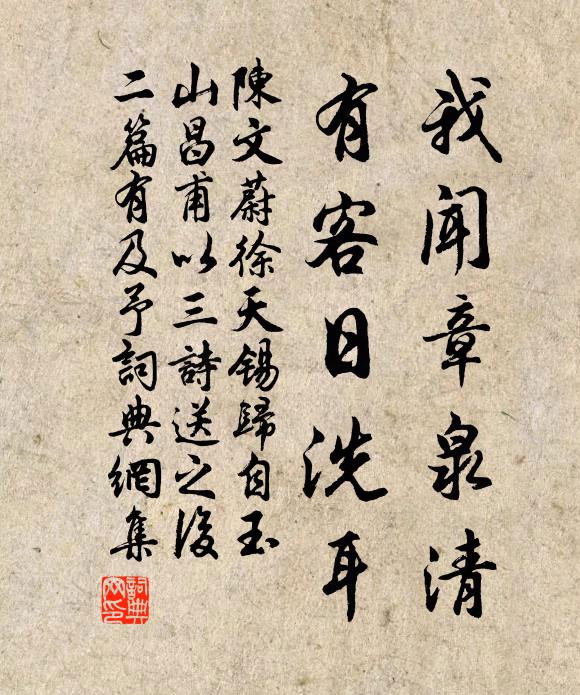 我聞章泉清
有客日洗耳
陳文蔚徐天錫歸自玉
山昌甫以三詩送之後
二篇有及予詞典網集
詞典
网印